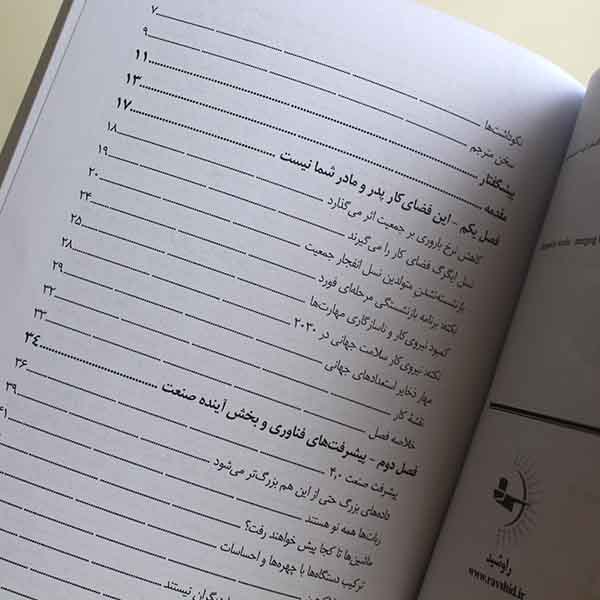 نکوداشت‌ها ۷
سخن مترجم ۹
پیشگفتار ۱۱
مقدمه ۱۳
فصل یکم - این فضای کار پدر و مادر شما نیست ۱۷
کاهش نرخ باروری بر جمعیت اثر می‌گذارد ۱۸
نسل ایگرگ فضای کار را می‌گیرند ۱۹
بازنشسته‌شدن متولدین نسل انفجار جمعیت ۲۰
نکته: برنامه بازنشستگی مرحله‌ای فورد ۲۴
کمبود نیروی کار و ناسازگاری مهارت‌ها ۲۵
نکته: نیروی کار سلامت جهانی در ۲۰۳۰ ۲۸
مهار ذخایر استعدادهای جهانی ۲۹
نقشهٔ کار ۳۲
خلاصه فصل ۳۳
فصل دوم - پیشرفت‌های فناوری و بخش آینده صنعت ۳۴
پیشرفت صنعت ۴,۰ ۳۶
داده‌های بزرگ حتی از این هم بزرگ‌تر می‌شود ۳۹
ربات‌ها همه نو هستند ۴۱
ماشین‌ها تا کجا پیش خواهند رفت؟
ترکیب دستگاه‌ها با چهره‌ها و احساسات
نیستند
راوشید
www.ravshid.ir